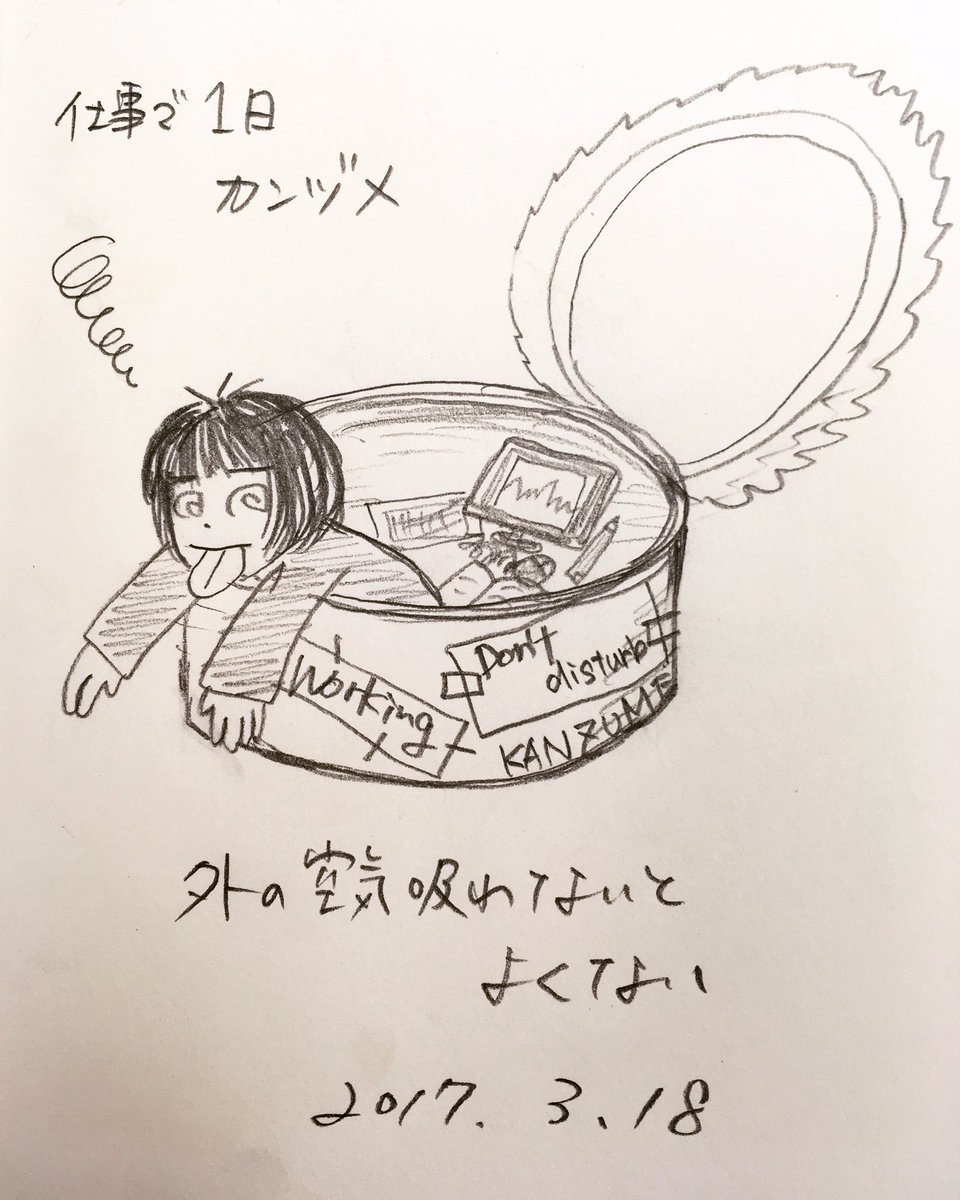 仕事で1日
カンヅメ
Working
Don't
disturb
KANZUME
外の空気吸わないと
よくない
2017.3.18